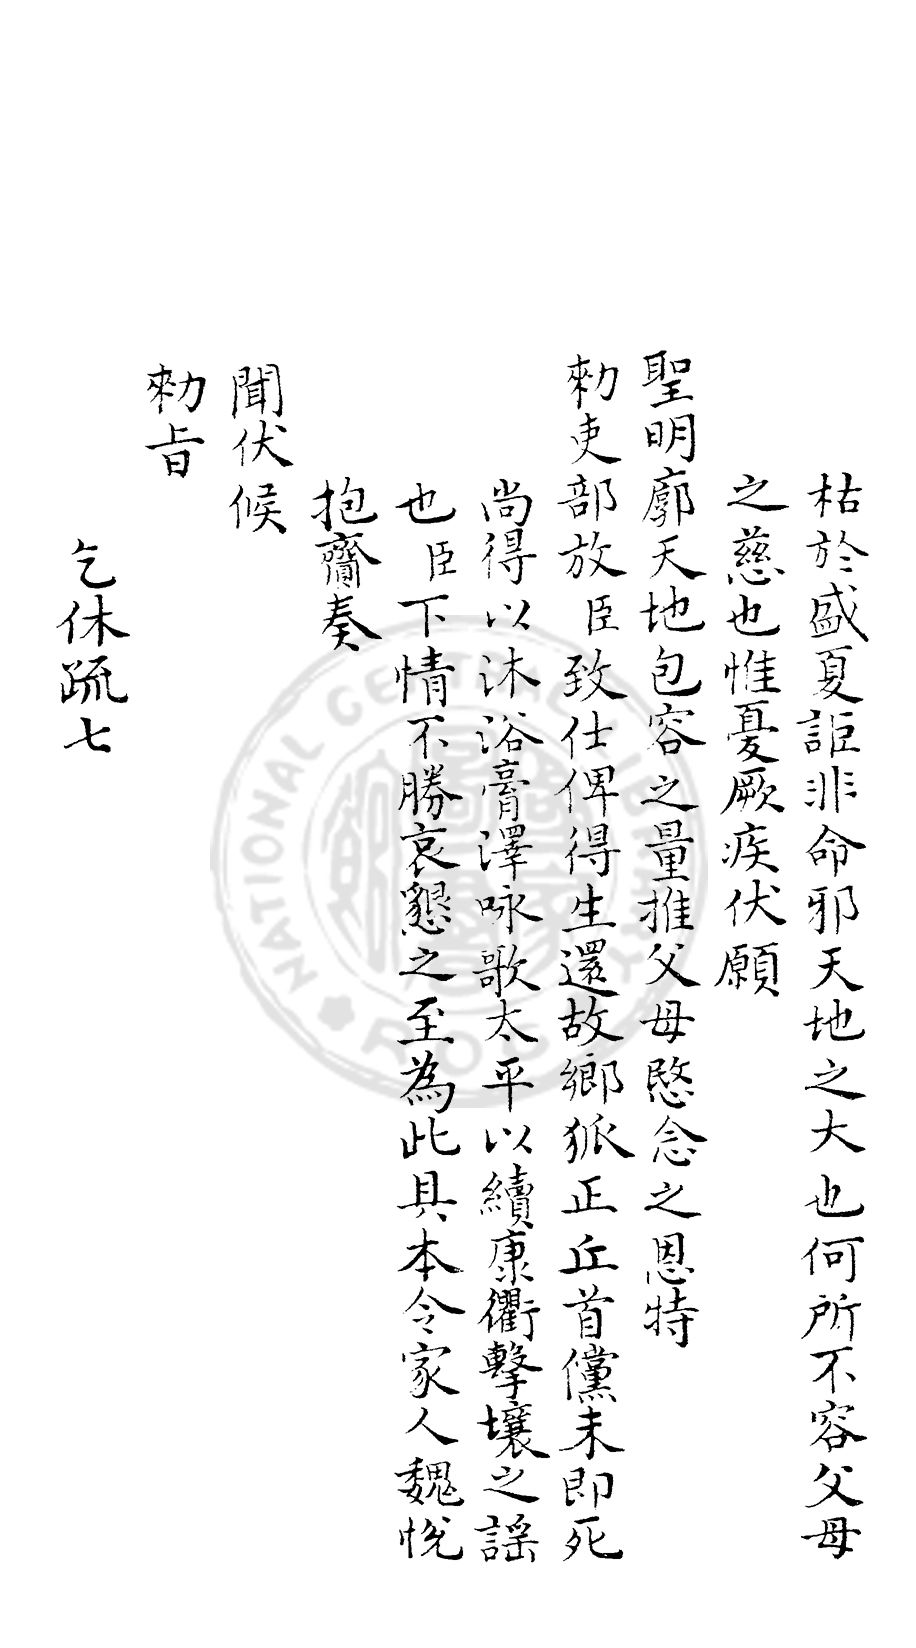 枯於盛夏詎非命邪天地之大也何所不容父母
之慈也惟憂厥疾伏願
聖明廓天地包容之量推父母愍念之恩特
勑吏部放臣致仕俾得生還故鄉狐正丘首儻未即死
尚得以沐浴膏澤咏歌太平以續康衢擊壤之謠
也臣下情不勝哀懇之至為此具本令家人魏悅
抱齎奏
聞伏候
勑旨
乞休疏七
NATIONAL CENTRAL LIBRARY
R.O.C.